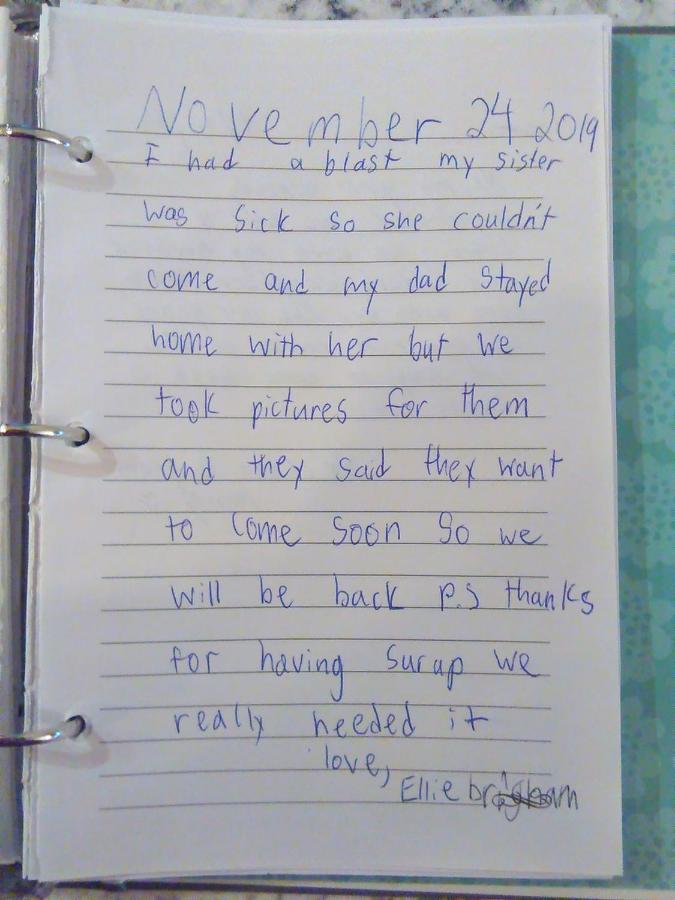 November 24 2019
I had a blast my sister
was sick so she couldn't
come and my dad stayed
home with her but we
took pictures for them
and they said they want
to come soon so we
will be back p.s thanks
for having surap we
really needed it
love,
Ellie